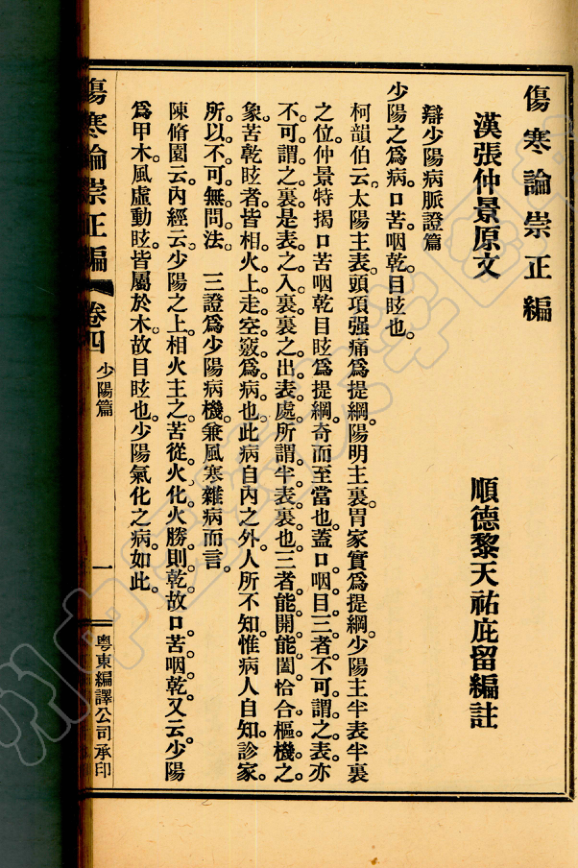 傷寒論崇正編
漢張仲景原文
順德黎天祐庇留編註
辯少陽病脈證篇
少陽之爲病。口苦咽乾。目眩也。
柯韻伯云。太陽主表。頭項强痛爲提綱。陽明主裏。胃家實爲提綱。少陽主半表半裏
之位。仲景特揭口苦咽乾目眩爲提綱。奇而至當也。蓋口咽目三者。不可謂之表。亦
不可謂之裏。是表之入裏。裏之出表處。所謂半表裏也。三者能開能闔。恰合樞機之
象。苦乾眩者。皆相火上走空竅爲病也。此病自內之外。人所不知。惟病人自知。診家
所以不可無問法。 三證爲少陽病機。兼風寒雜病而言。
陳脩園云。內經云。少陽之上。相火主之。苦從火化。火勝則乾。故口苦咽乾。又云。少陽
爲甲木。風虛動眩。皆屬於木。故目眩也。少陽氣化之病如此。
傷寒論崇正編 卷四 少陽篇 一 粵東編譯公司承印